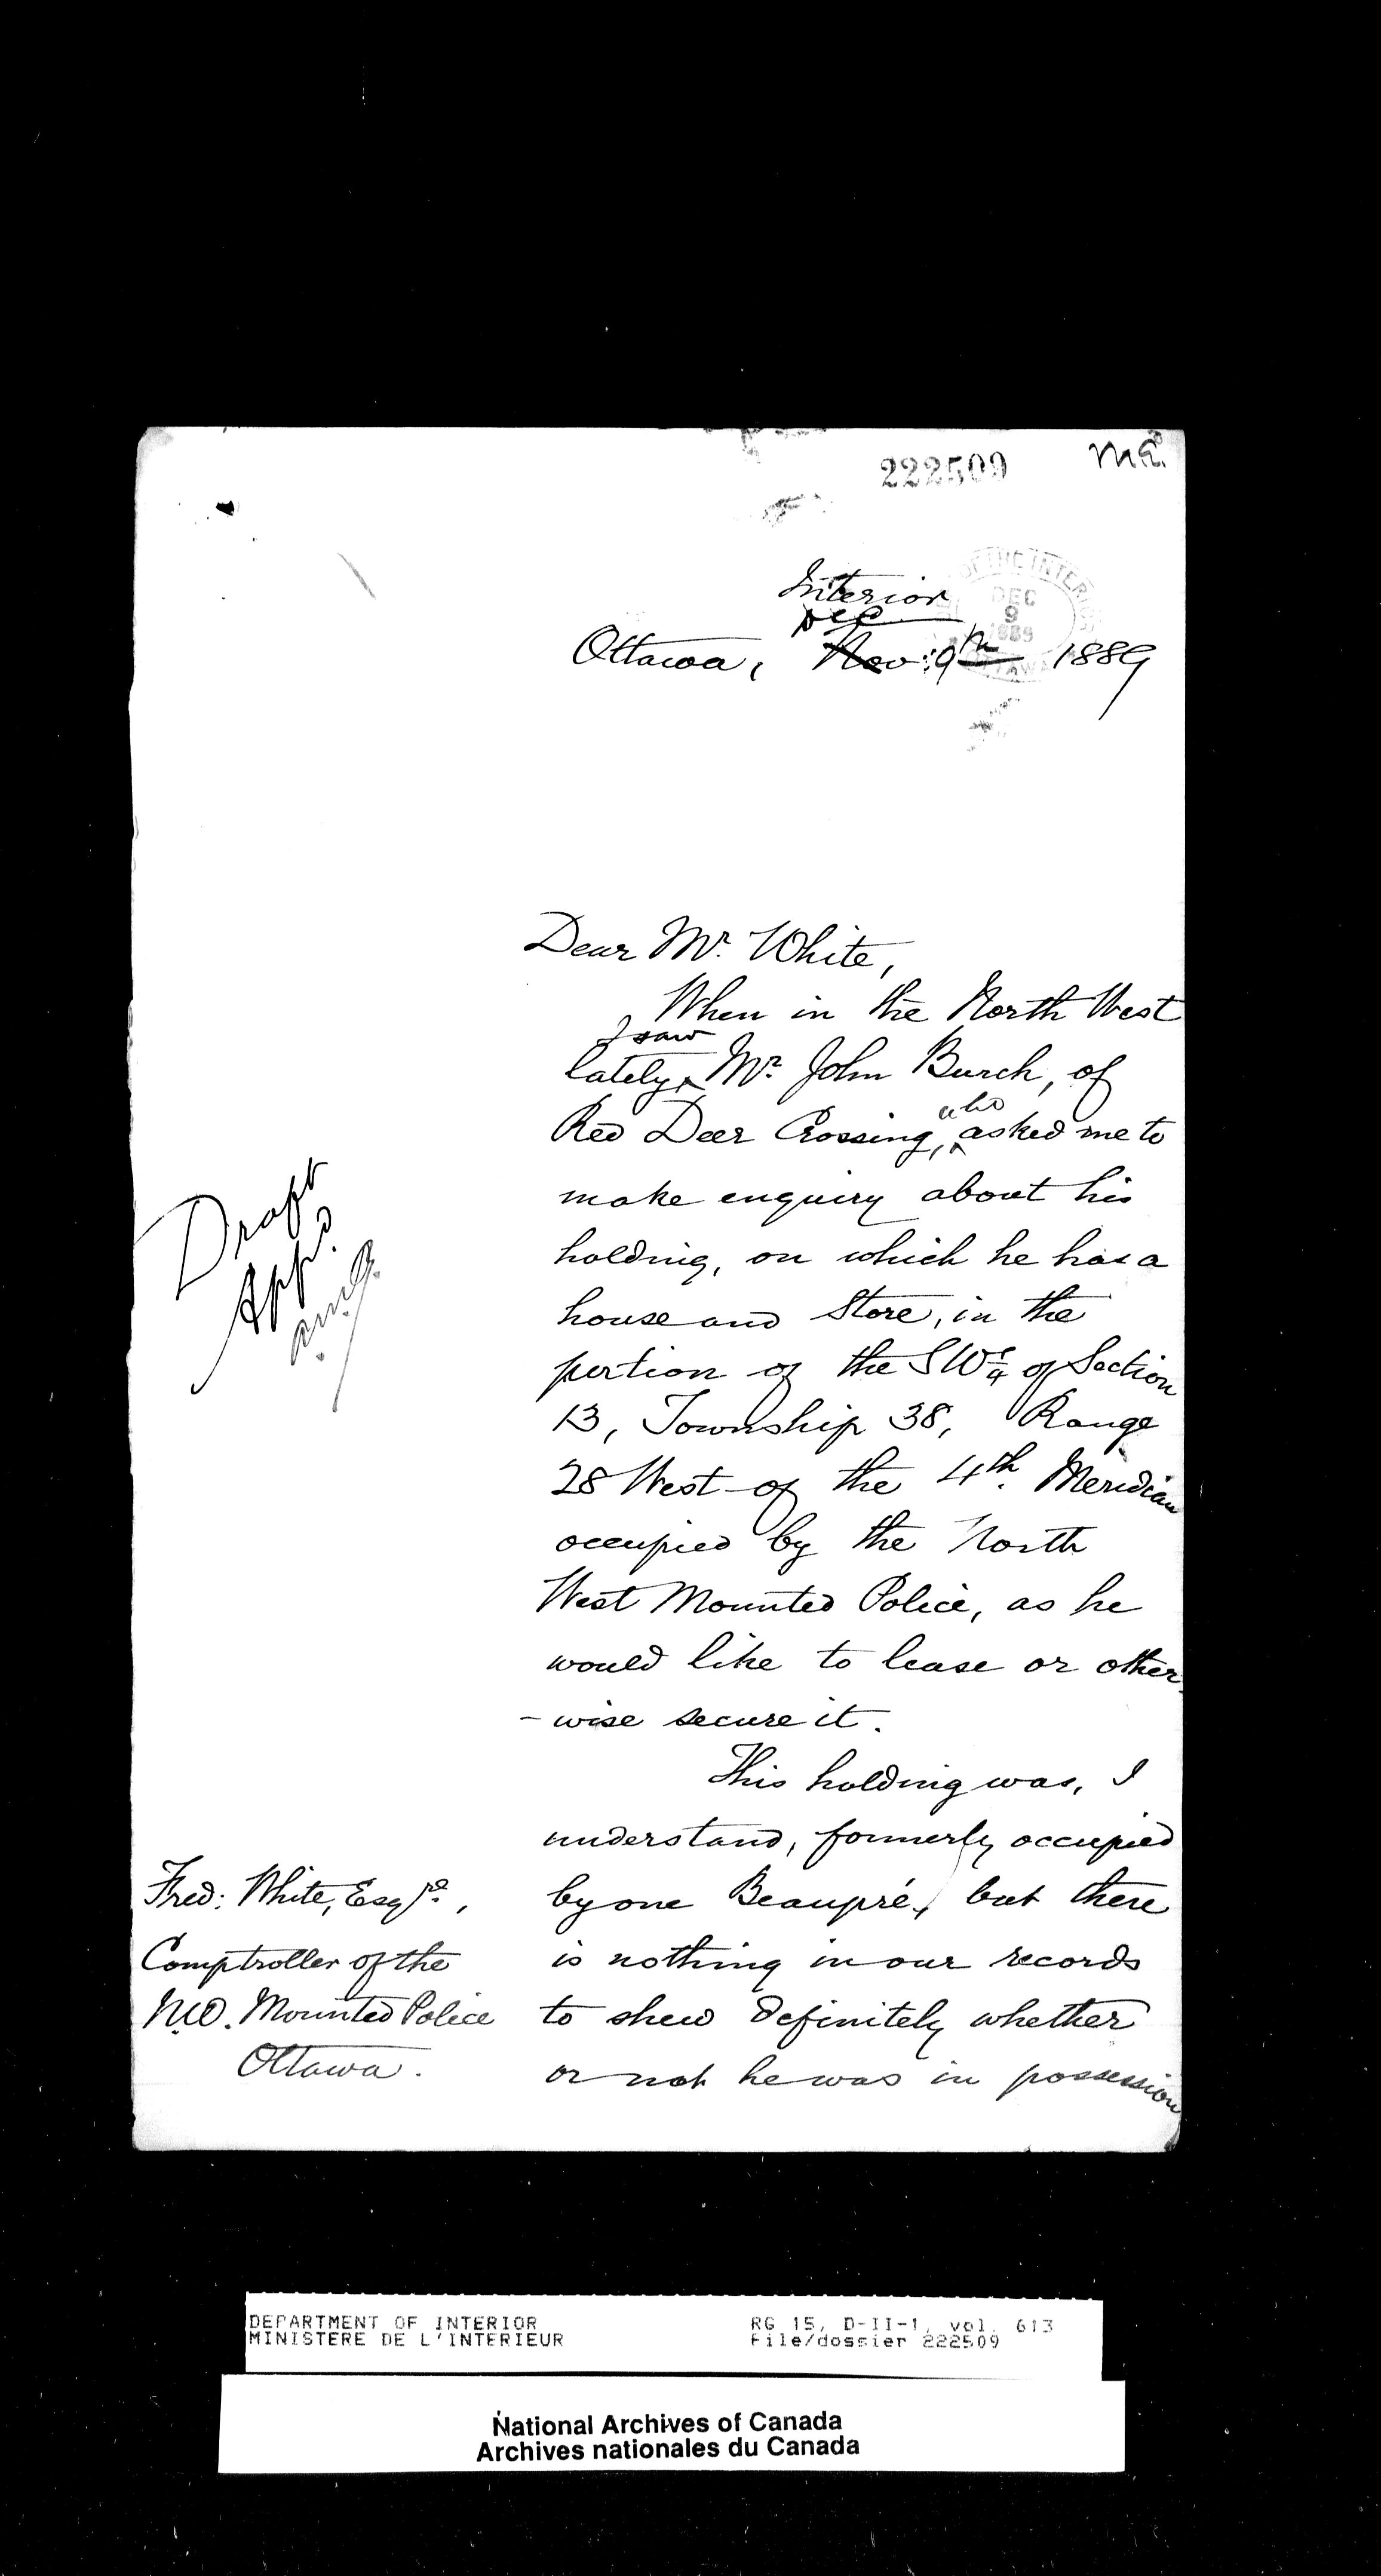 222509
Interior
OF THE INTERIOR
DEC
9
1889
OTTAWA
Dec
Ottawa, Nov: 9th 1889
Dear Mr. White,
When in the North West
I saw
lately Mr. John Burch, of
who
Red Deer Crossing, asked me to
make enquiry about his
holding, on which he has a
house and Store, in the
portion of the SW¼ of Section
13, Township 38, Range
28 West of the 4th. Meridian
occupied by the North
West Mounted Police, as he
would like to lease or other
-wise secure it.
This holding was, I
understand, formerly occupied
by one Beaupré, but there
is nothing in our records
to shew definitely whether
or not he was in possession
Draft
App.d
Fred: White, Esqre.,
Comptroller of the
N.W. Mounted Police
Ottawa.
DEPARTMENT OF INTERIOR
MINISTERE DE L'INTERIEUR
RG 15, D-II-1, vol. 613
File/dossier 222509
National Archives of Canada
Archives nationales du Canada